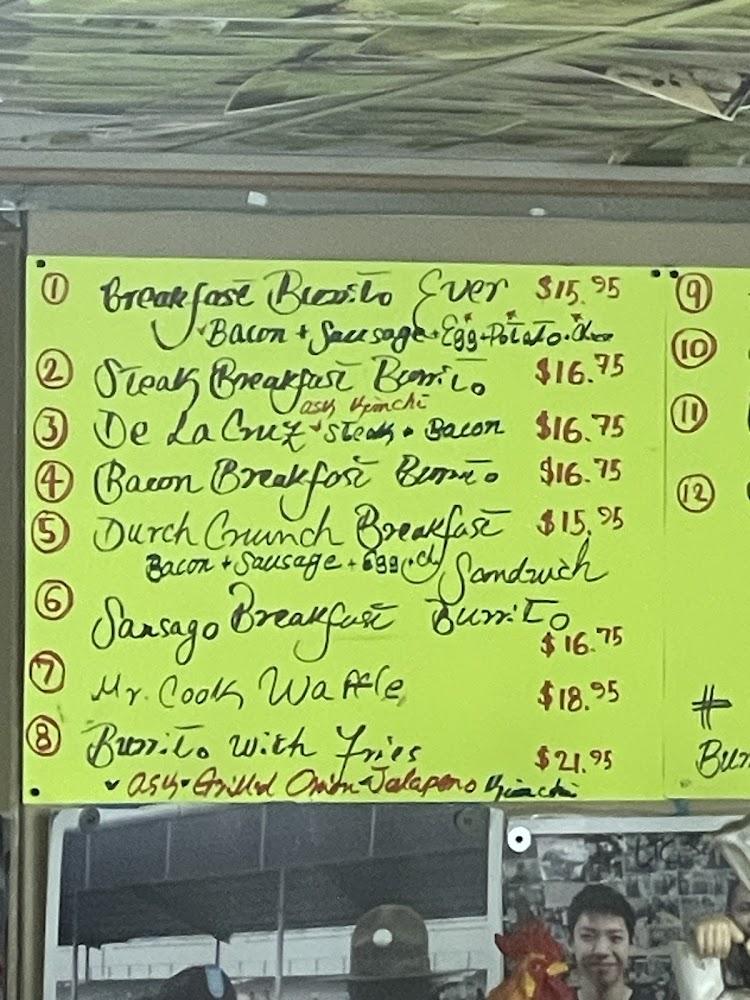 ① Breakfast Burrito Ever $15.95
Bacon + Sausage + Egg + Potato + Chee
② Steak Breakfast Burrito $16.75
ask Kimchi
③ De La Cruz Steak + Bacon $16.75
④ Bacon Breakfast Burrito $16.75
⑤ Durch Crunch Breakfast $15.95
Bacon + Sausage + Egg + ch Sandwich
⑥ Sausago Breakfast Burrito
$16.75
⑦ Mr. Cook Waffle $18.95
⑧ Burrito with Fries $21.95
ask Grilled Onion Jalapeno Kimchi
⑨
⑩
⑪
⑫
#
Burr